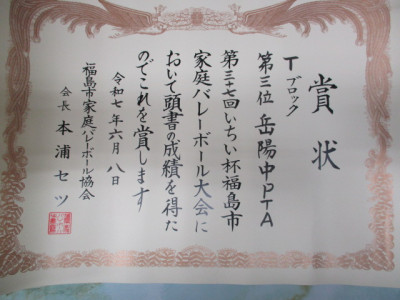 賞状
Tブロック
第三位 岳陽中PTA
第三十七回いちい杯福島市
家庭バレーボール大会に
おいて頭書の成績を得た
のでこれを賞します
令和七年六月八日
福島市家庭バレーボール協会
会長 本浦セツ